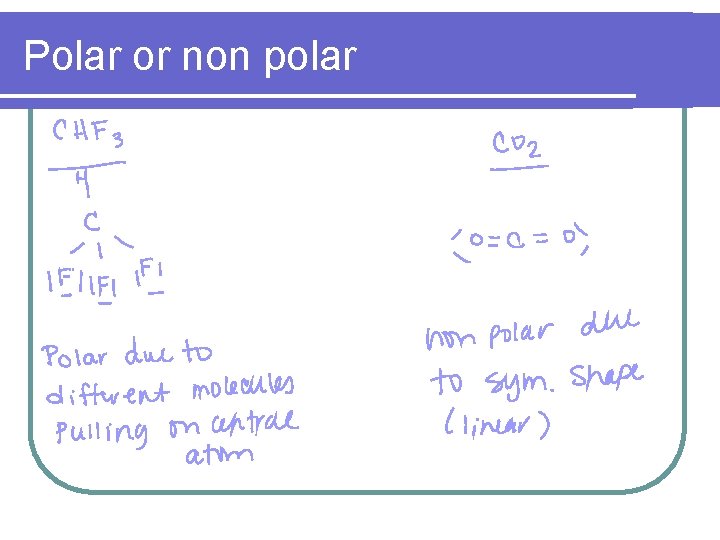 Polar or non polar
CHF3
H
C
|F| |F| |F|
Polar due to
different molecules
Pulling on central
atom
CO2
O=C=O
non polar due
to sym. shape
(linear)